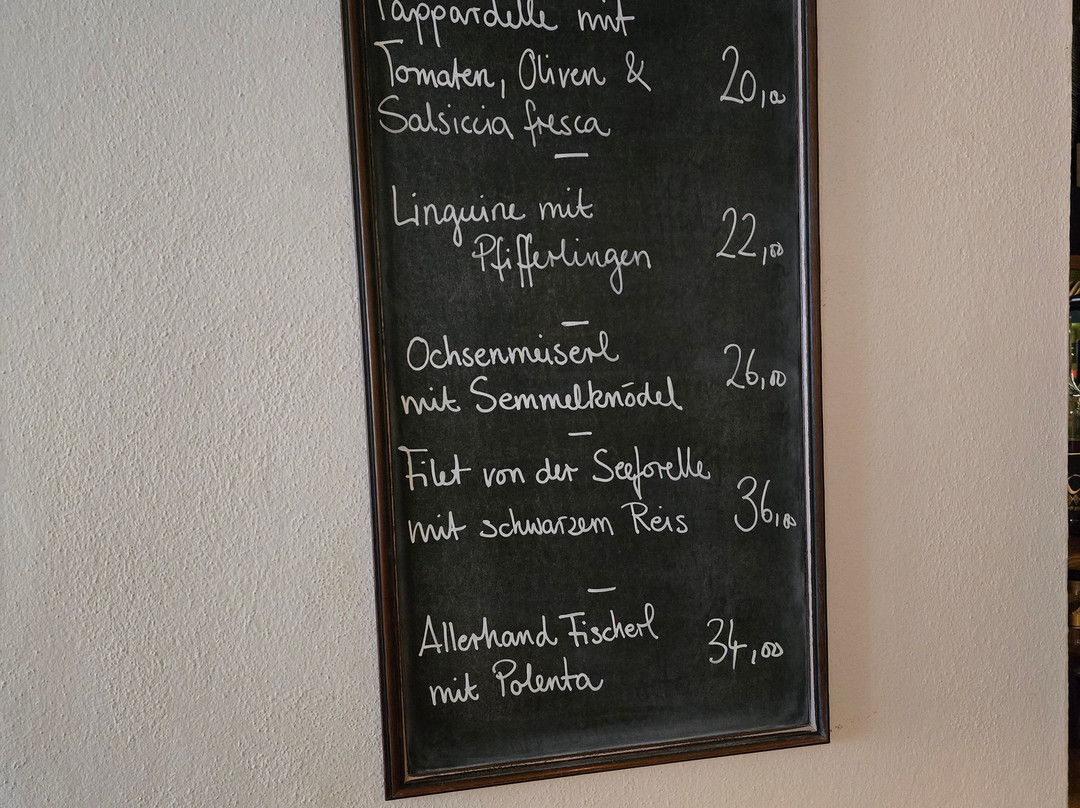 Pappardelle mit
Tomaten, Oliven &
Salsiccia fresca
20,00
Linguine mit
Pfifferlingen
22,00
Ochsenmeiserl
mit Semmelknödel
26,00
Filet von der Seeforelle
mit schwarzem Reis
36,00
Allerhand Fischerl
mit Polenta
34,00